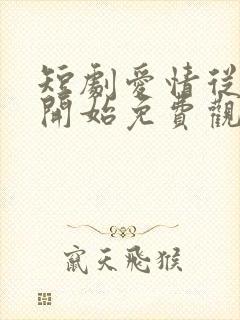 短劇愛情從
開始免費觀
竄天飛猴